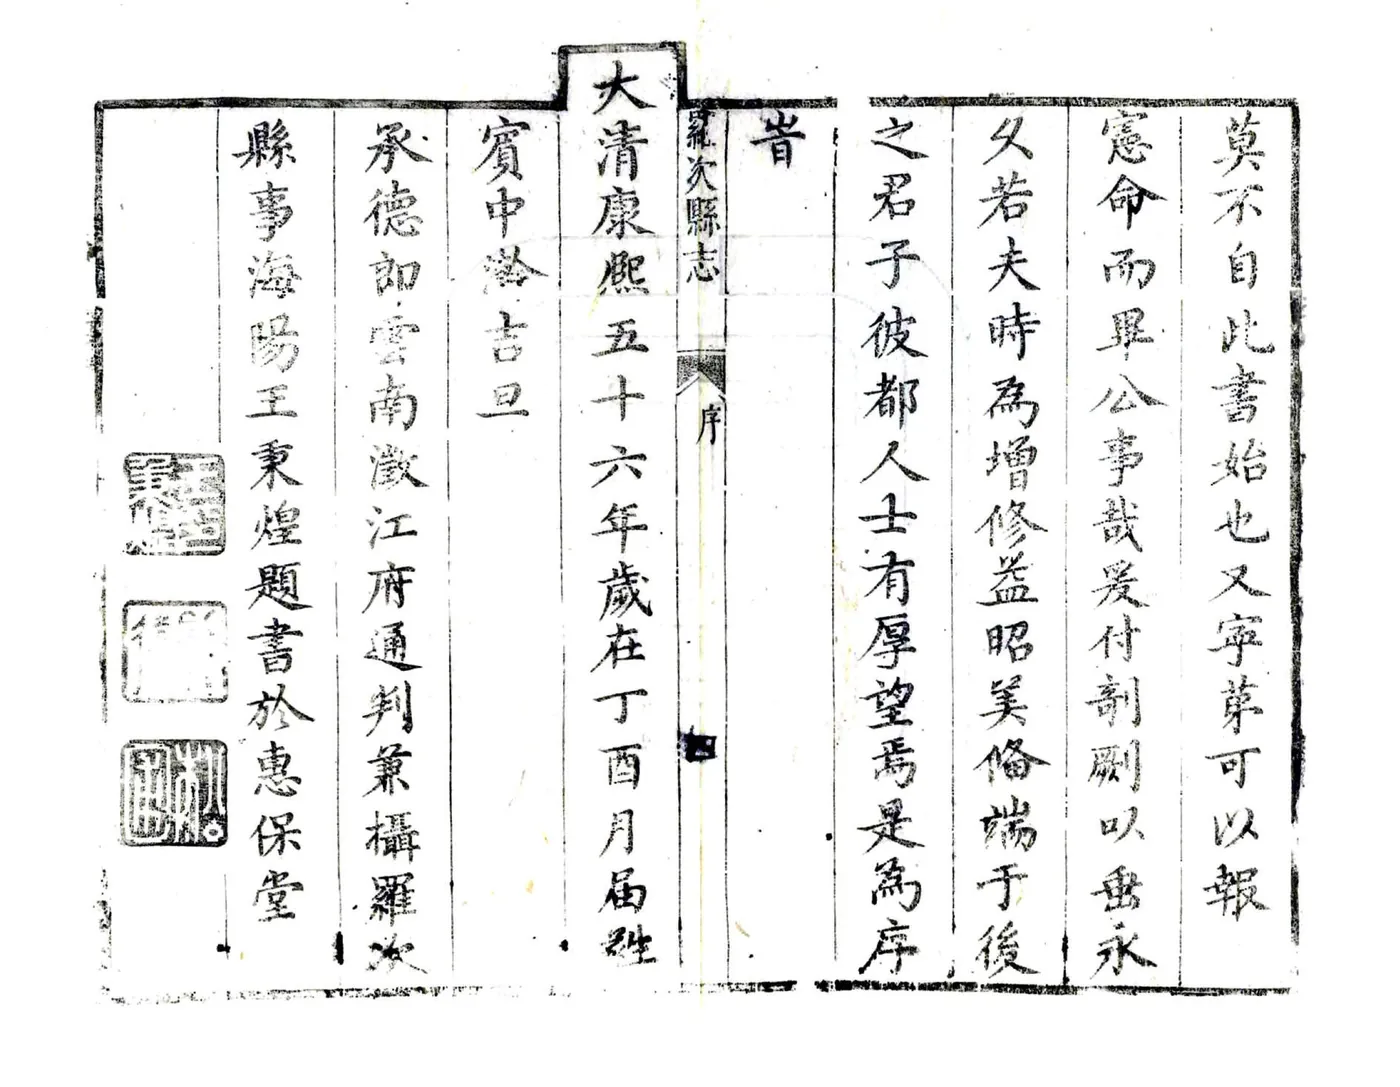 莫不自此書始也又寧苐可以報
憲命而畢公事哉爰付剞劂以垂永
久若夫時為增修益昭美備端于後
之君子彼都人士有厚望焉是為序
旹
羅次縣志
序
四
大清康熙五十六年歲在丁酉月届
賓中澣吉旦
承德郎雲南澂江府通判兼攝羅次
縣事海陽王秉煌題書於惠保堂